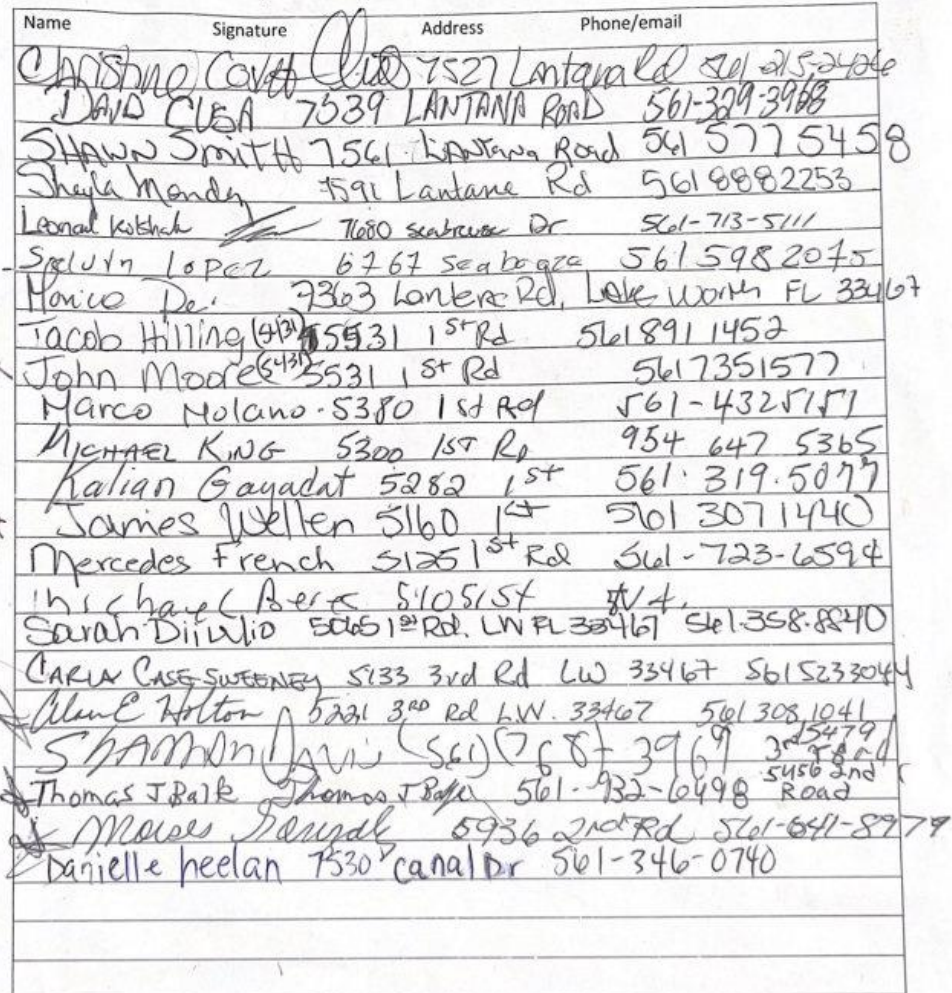 Name Signature Address Phone/email
Christine 7527 Lantana Rd 561-215-2426
DAVID CUSA 7539 LANTANA ROAD 561-329-3968
SHAWN SMITH 7561 LANTANA Road 561 577 5458
Sheyla 7591 Lantana Rd 561 8882253
7680 Dr 561-713-5111
Lopez 6767 561 598 2075
7363 Rd, Lake Worth FL 33467
Jacob Hilling (5431) 5531 1st Rd 561891 1452
John Moore (5431) 5531 1st Rd 5617351577
Marco Molano. 5380 1st Rd 561-4325151
MICHAEL KING 5300 1ST RD 954 647 5365
Kalian Gayadat 5282 1st 561. 319.5077
James Wellen 5160 1st 561 3071440
Mercedes French 5125 1st Rd 561-723-6594
5105 1st
Sarah 5065 1st Rd. LW FL 33467 561.358.8840
CARLA CASE-SWEENEY 5133 3rd Rd LW 33467 5615233044
Alan E Holton 5221 3RD Rd L.W. 33467 561 308 1041
SHANNON Davis (561) (768) 3969 5479 3rd Road
Thomas J Balk Thomas J Balk 561-932-6498 5456 2nd Road
Moises 5936 2nd Rd 561-641-8979
Danielle heelan 7530 canal Dr 561-346-0740